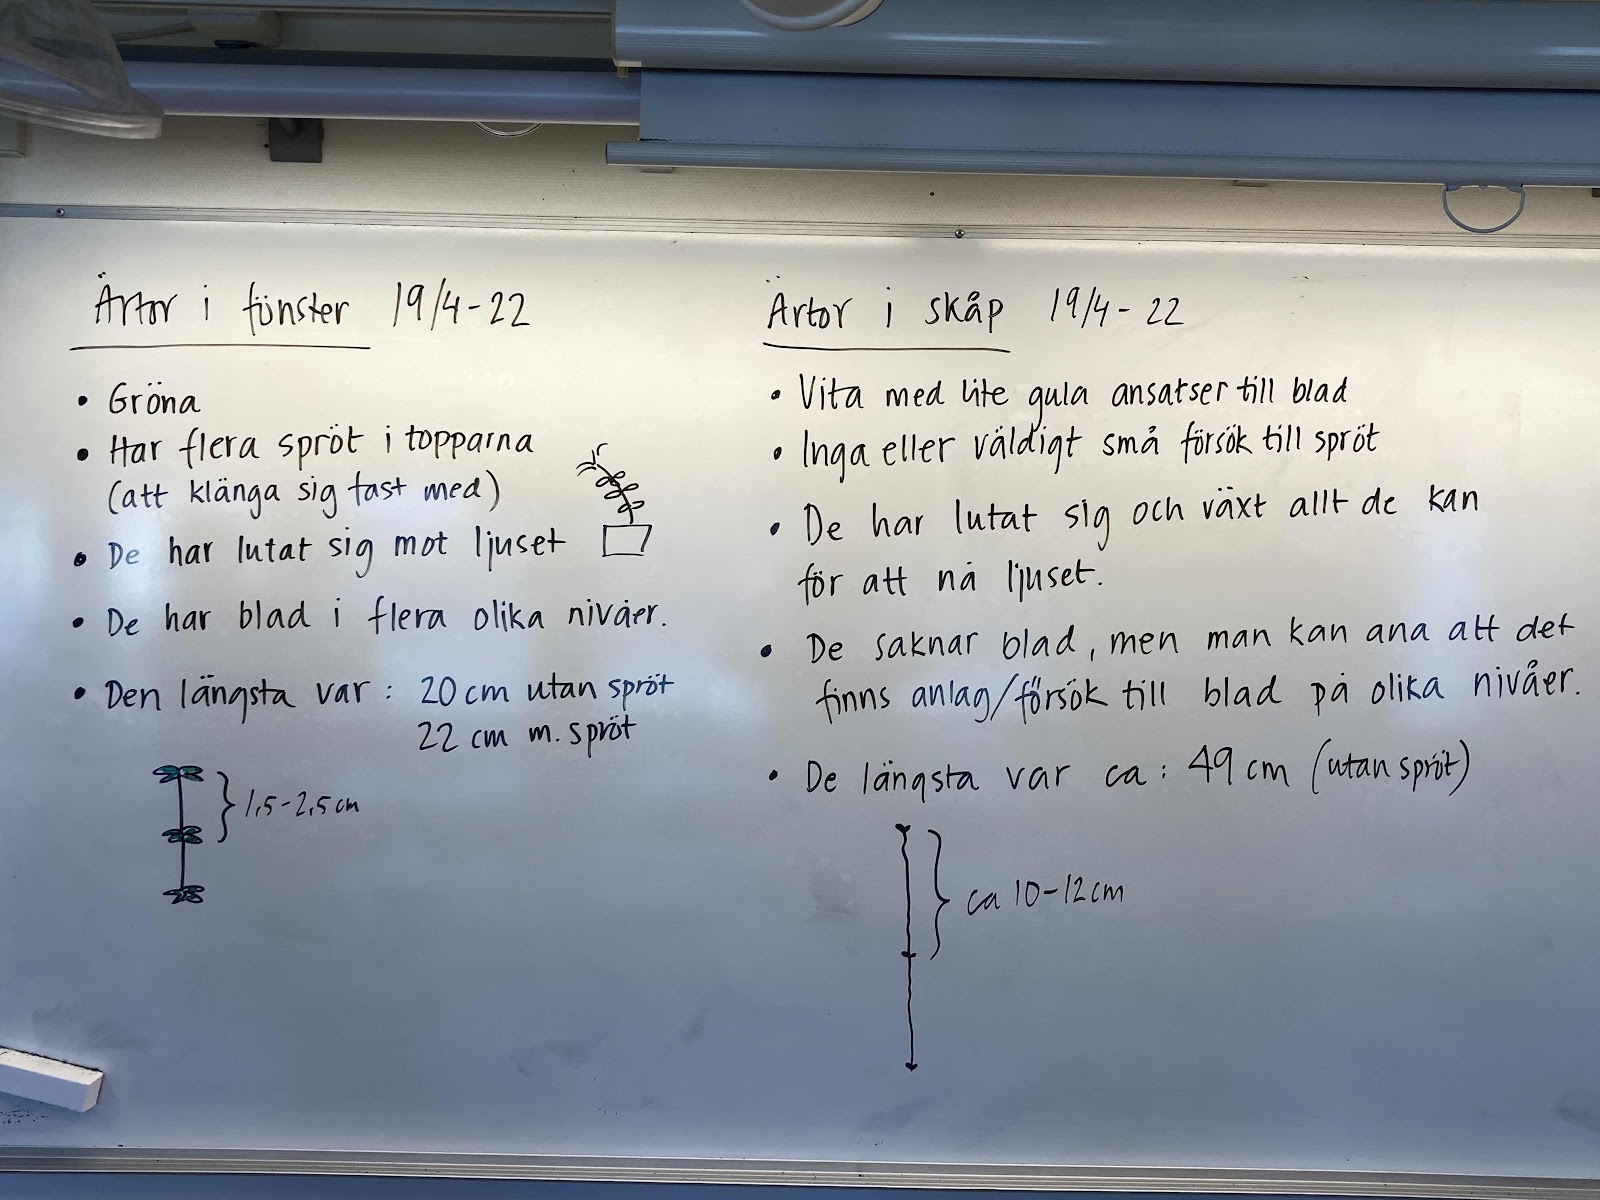 Ärtor i fönster 19/4-22
• Gröna
• Har flera spröt i topparna
(att klänga sig fast med)
• De har lutat sig mot ljuset
• De har blad i flera olika nivåer.
• Den längsta var: 20 cm utan spröt
22 cm m. spröt
1,5-2,5 cm
Ärtor i skåp 19/4-22
• Vita med lite gula ansatser till blad
• Inga eller väldigt små försök till spröt
• De har lutat sig och växt allt de kan
för att nå ljuset.
• De saknar blad, men man kan ana att det
finns anlag/försök till blad på olika nivåer.
• De längsta var ca: 49 cm (utan spröt)
ca 10-12 cm